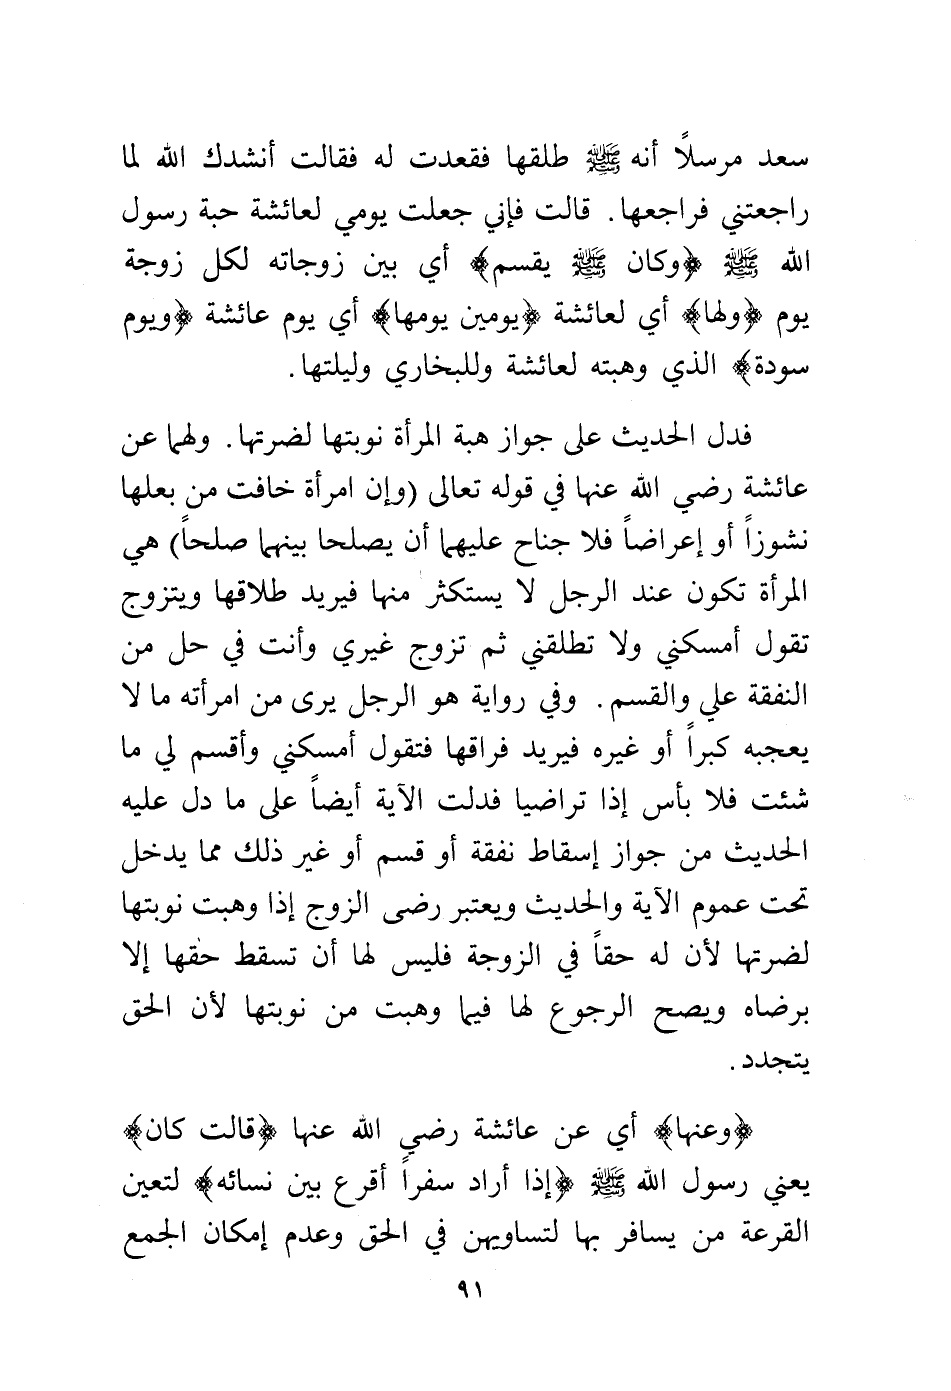 سعد مرسلاً أنه ﷺ طلقها فقعدت له فقالت أنشدك الله لما
راجعتني فراجعها. قالت فإني جعلت يومي لعائشة حبة رسول
الله ﷺ ﴿وكان ﷺ يقسم﴾ أي بين زوجاته لكل زوجة
يوم ﴿ولها﴾ أي لعائشة ﴿يومين يومها﴾ أي يوم عائشة ﴿ويوم
سودة﴾ الذي وهبته لعائشة وللبخاري وليلتها.
فدل الحديث على جواز هبة المرأة نوبتها لضرتها. ولهما عن
عائشة رضي الله عنها في قوله تعالى (وإن امرأة خافت من بعلها
نشوزاً أو إعراضاً فلا جناح عليهما أن يصلحا بينهما صلحاً) هي
المرأة تكون عند الرجل لا يستكثر منها فيريد طلاقها ويتزوج
تقول أمسكني ولا تطلقني ثم تزوج غيري وأنت في حل من
النفقة علي والقسم. وفي رواية هو الرجل يرى من امرأته ما لا
يعجبه كبراً أو غيره فيريد فراقها فتقول أمسكني وأقسم لي ما
شئت فلا بأس إذا تراضيا فدلت الآية أيضاً على ما دل عليه
الحديث من جواز إسقاط نفقة أو قسم أو غير ذلك مما يدخل
تحت عموم الآية والحديث ويعتبر رضى الزوج إذا وهبت نوبتها
لضرتها لأن له حقاً في الزوجة فليس لها أن تسقط حقها إلا
برضاه ويصح الرجوع لها فيما وهبت من نوبتها لأن الحق
يتجدد.
﴿وعنها﴾ أي عن عائشة رضي الله عنها ﴿قالت كان﴾
يعني رسول الله ﷺ ﴿إذا أراد سفراً أقرع بين نسائه﴾ لتعين
القرعة من يسافر بها لتساويهن في الحق وعدم إمكان الجمع
٩١